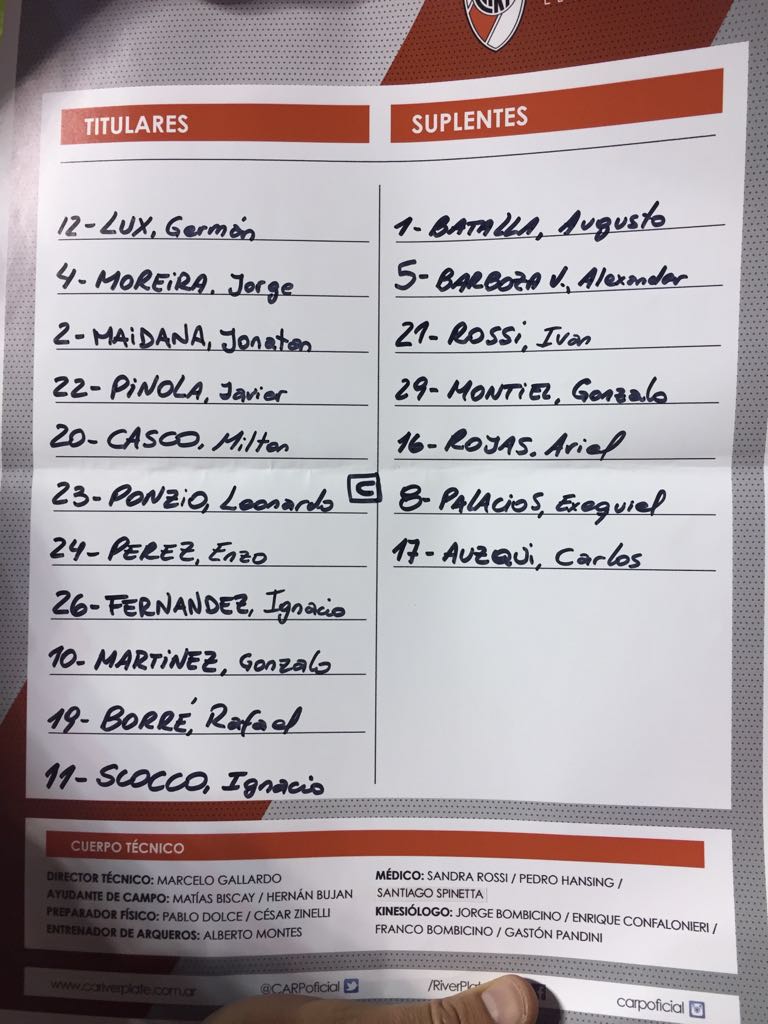 TITULARES
12-LUX, Germán
4-MOREIRA, Jorge
2-MAIDANA, Jonatan
22-PINOLA, Javier
20-CASCO, Milton
23-PONZIO, Leonardo C
24-PEREZ, Enzo
26-FERNANDEZ, Ignacio
10-MARTINEZ, Gonzalo
19-BORRÉ, Rafael
11-SCOCCO, Ignacio
SUPLENTES
1-BATALLA, Augusto
5-BARBOZA V., Alexander
21-ROSSI, Ivan
29-MONTIEL, Gonzalo
16-ROJAS. Ariel
8-PALACIOS, Exequiel
17-AUZQUI, Carlos
CUERPO TÉCNICO
DIRECTOR TÉCNICO: MARCELO GALLARDO
AYUDANTE DE CAMPO: MATÍAS BISCAY / HERNÁN BUJAN
PREPARADOR FÍSICO: PABLO DOLCE / CÉSAR ZINELLI
ENTRENADOR DE ARQUEROS: ALBERTO MONTES
MÉDICO: SANDRA ROSSI / PEDRO HANSING /
SANTIAGO SPINETTA
KINESIÓLOGO: JORGE BOMBICINO / ENRIQUE CONFALONIERI /
FRANCO BOMBICINO / GASTÓN PANDINI
www.cariverplate.com.ar @CARPoficial /RiverPla carpoficial